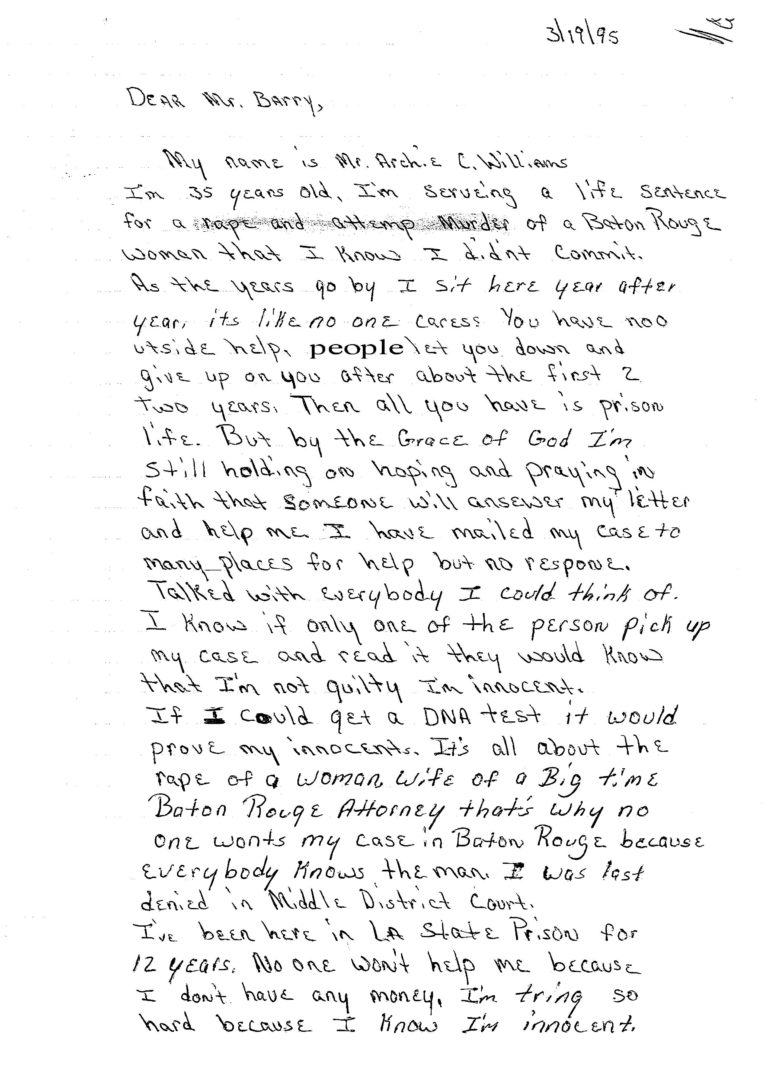 3/19/95
Dear Mr. Barry,
My name is Mr. Archie C. Williams
I'm 35 years old, I'm serveing a life sentence
for a rape and attemp Murder of a Baton Rouge
woman that I know I did'nt commit.
As the years go by I sit here year after
year, its like no one caress You have noo
utside help, people let you down and
give up on you after about the first 2
two years. Then all you have is prison
life. But by the Grace of God I'm
still holding on hoping and praying in
faith that someone will ansewer my letter
and help me. I have mailed my case to
many places for help but no respone.
Talked with everybody I could think of.
I know if only one of the person pick up
my case and read it they would know
that I'm not guilty I'm innocent.
If I could get a DNA test it would
prove my innocents. It's all about the
rape of a woman, wife of a Big time
Baton Rouge Attorney that's why no
one wonts my case in Baton Rouge because
everybody knows the man. I was last
denied in Middle District Court.
I've been here in LA State Prison for
12 years. No one won't help me because
I don't have any money, I'm tring so
hard because I know I'm innocent.